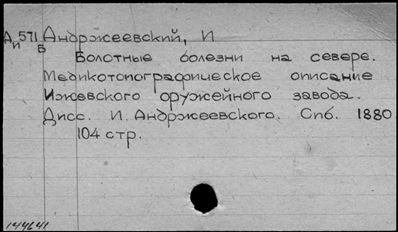 Ди 571 Андржеевский, И
Б
Болотные болезни на севере.
Медикотопографическое описание
Ижевского оружейного завода.
Дисс. И. Андржеевского. Спб. 1880
104 стр.
144641